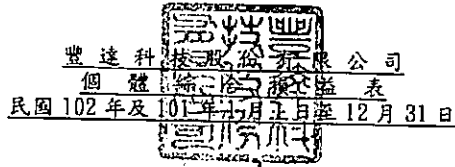 豐達科技股份有限公司
個體綜合損益表
民國 102 年及 101 年 1 月 1 日至 12 月 31 日